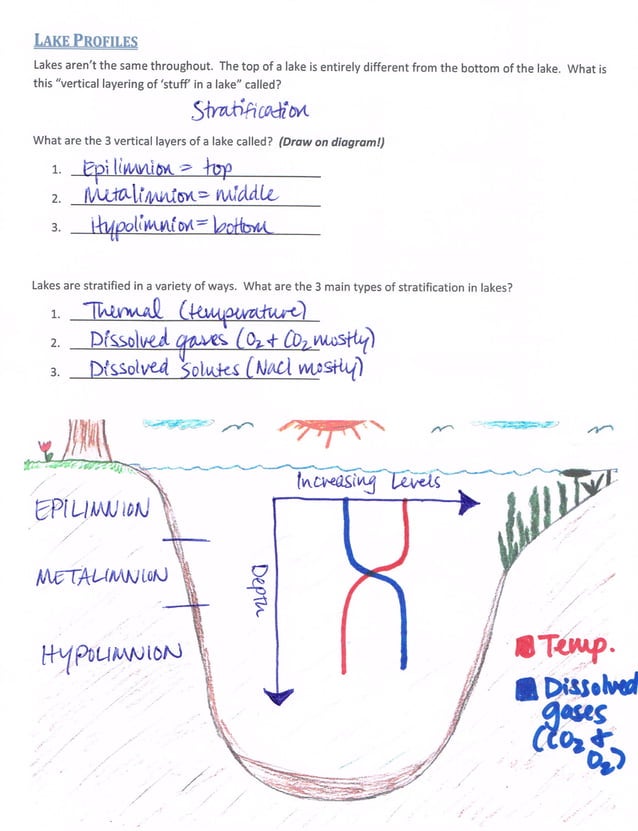 LAKE PROFILES
Lakes aren't the same throughout. The top of a lake is entirely different from the bottom of the lake. What is
this "vertical layering of 'stuff' in a lake" called?
Stratification
What are the 3 vertical layers of a lake called? (Draw on diagram!)
1. Epilimnion = top
2. Metalimnion = middle
3. Hypolimnion = bottom
Lakes are stratified in a variety of ways. What are the 3 main types of stratification in lakes?
1. Thermal (temperature)
2. Dissolved gases (O2 + CO2 mostly)
3. Dissolved Solutes (NaCl mostly)
Increasing Levels
EPILIMNION
METALIMNION
Depth
HYPOLIMNION
Temp.
Dissolved
gases
(CO2 &
O2)